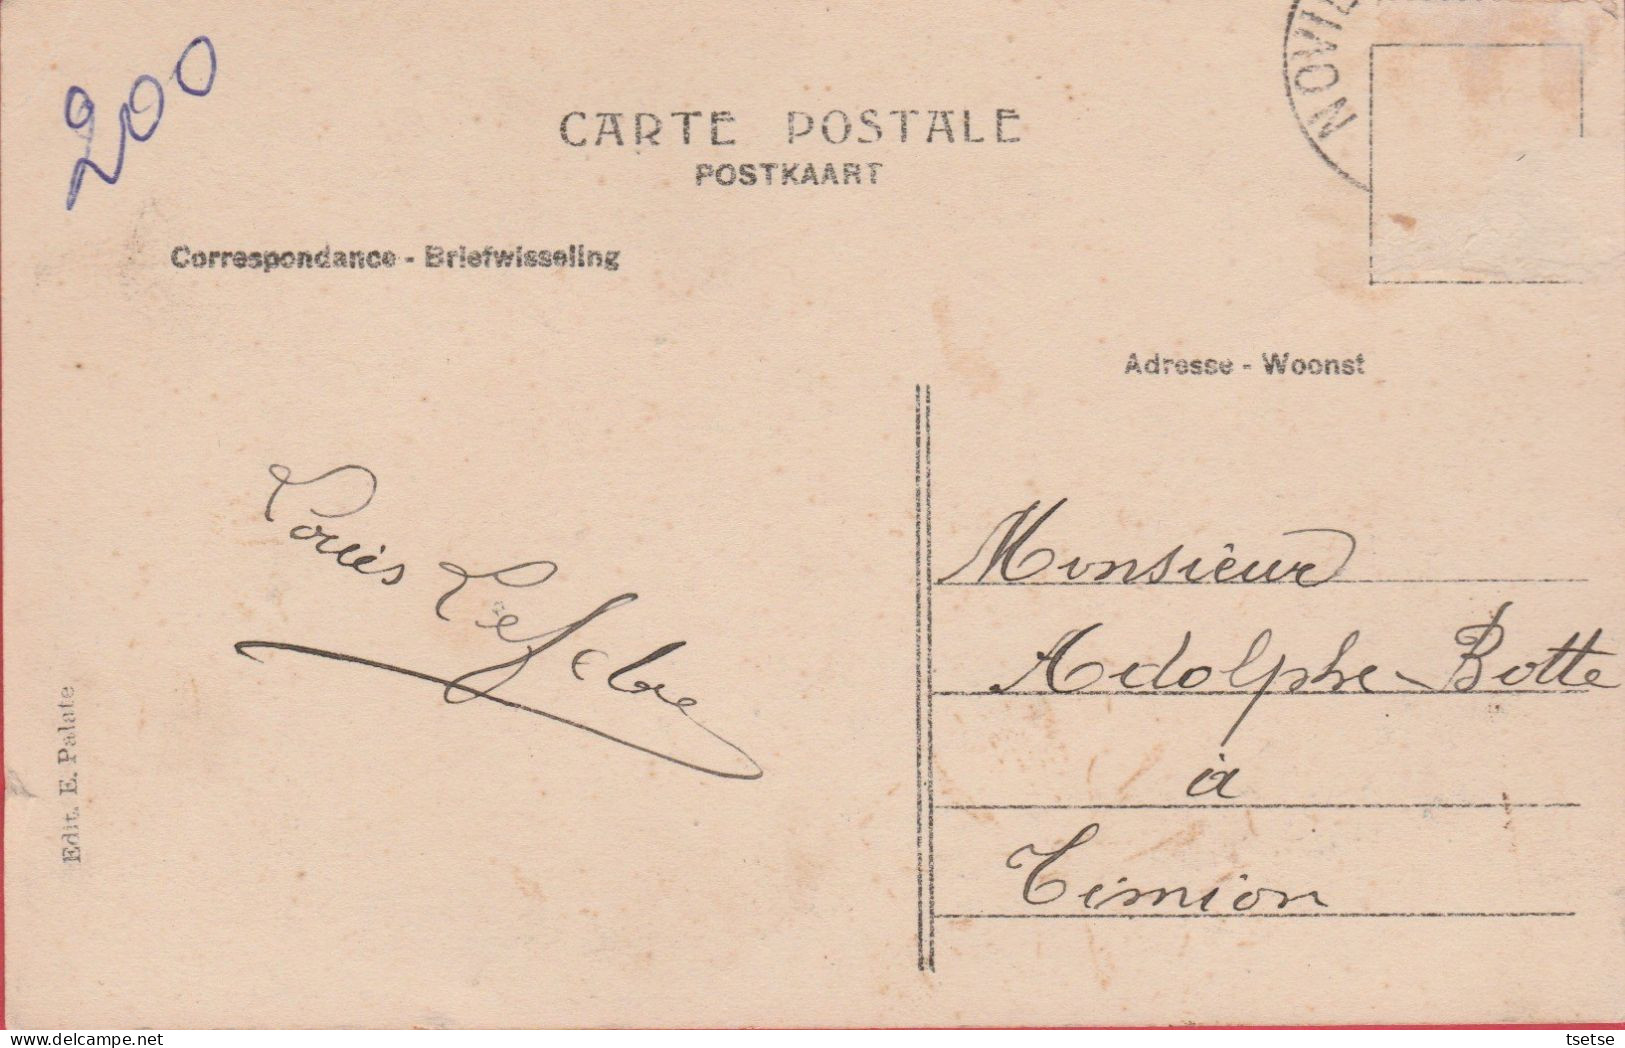 200
NOVIL
CARTE POSTALE
POSTKAART
Correspondance - Briefwisseling
Adresse - Woonst
Louis Lefebre
Monsieur
Adolphe Botte
à
Timion
Edit. E. Palate
tsetse